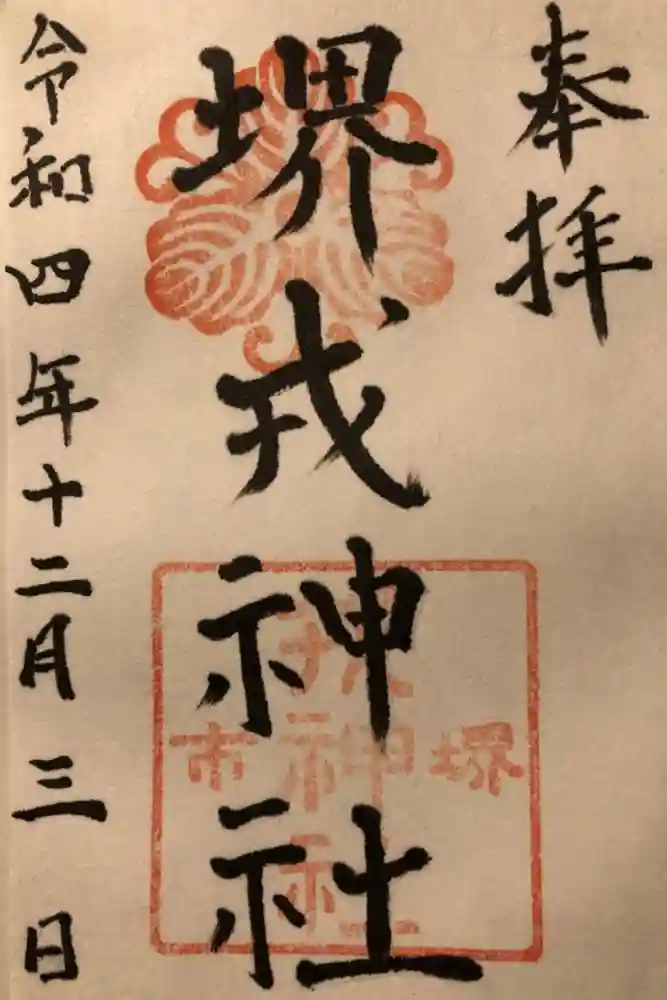 奉拝
堺戎神社
堺 市
戎神社
令和四年十二月三日